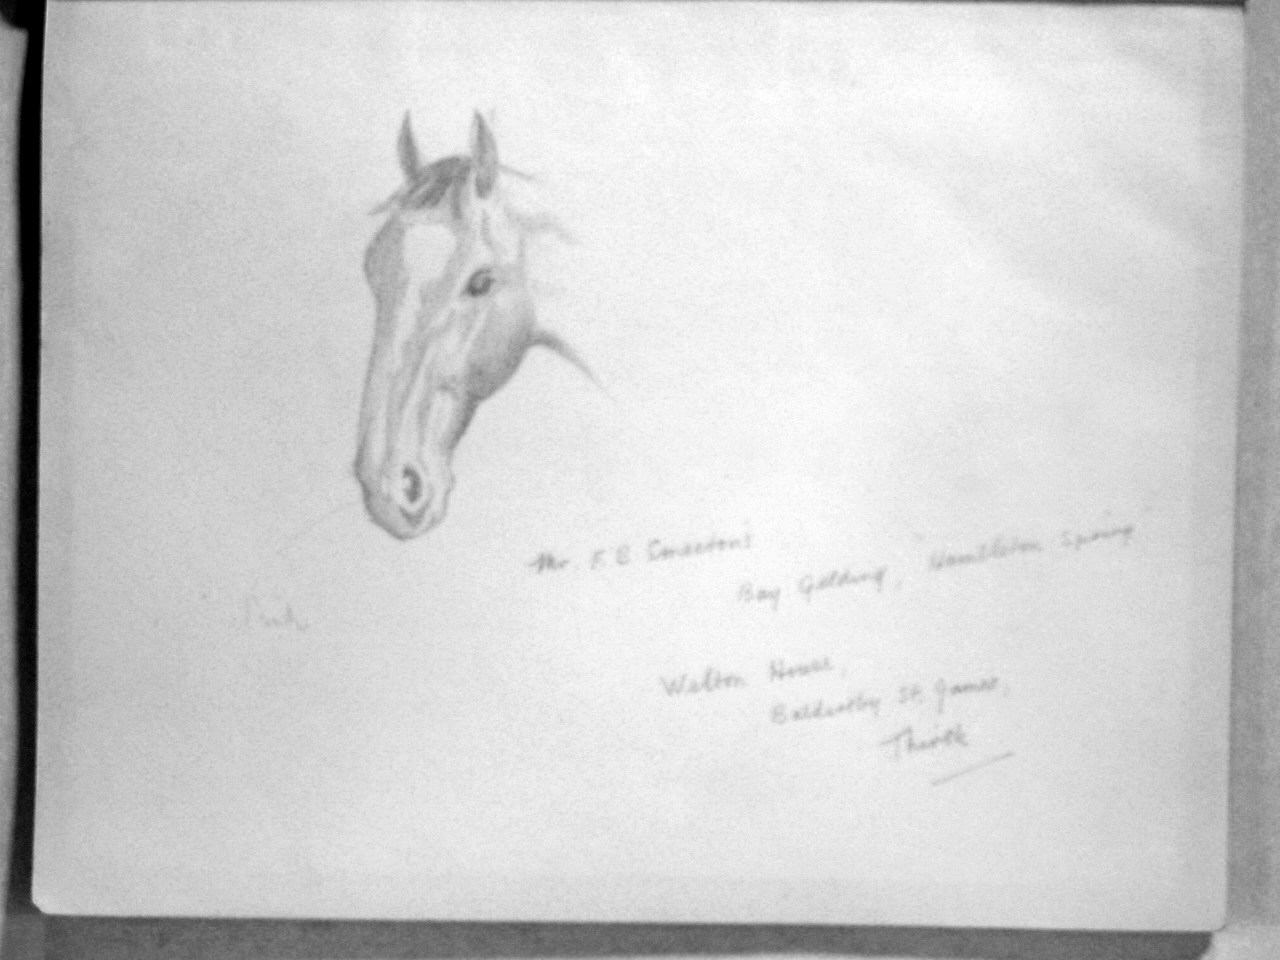 Mr. F. E Smeeton's
Bay Gelding, "Hambleton Spring"
Pink
Welton House,
Baldersby St. James,
Thirsk